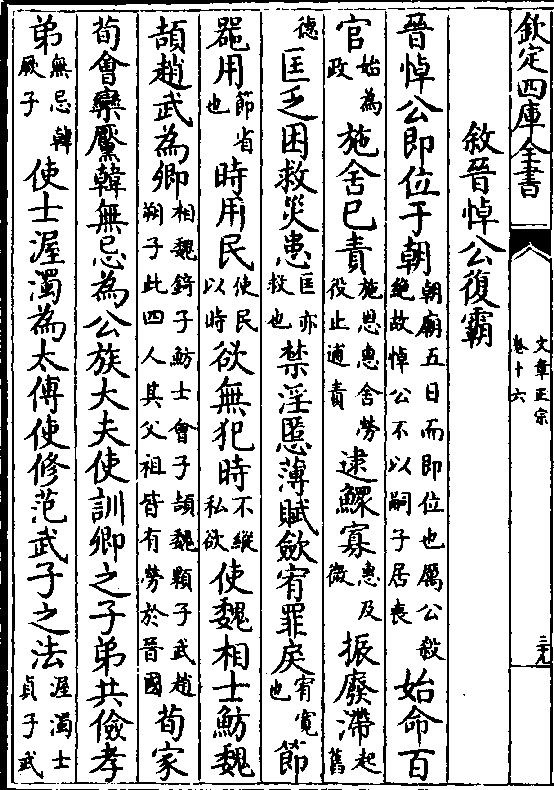 欽定四庫全書
文章正宗
卷十六
三十九
敘晉悼公復霸
晉悼公即位于朝朝廟五日而即位也厲公殺絶故悼公不以嗣子居喪始命百
官始為政施舍已責施恩惠舍勞役止逋責逮鰥寡惠及微振廢滯起舊
德匡乏困救災患匡亦救也禁淫慝薄賦歛宥罪戾宥寛也節
噐用節省也時用民使民以時欲無犯時不縱私欲使魏相士魴魏
頡趙武為卿相魏錡子魴士會子頡魏顆子武趙朔子此四人其父祖皆有勞於晉國荀家
荀會欒黶韓無忌為公族大夫使訓卿之子弟共儉孝
弟無忌韓厥子使士渥濁為太傅使修范武子之法渥濁士貞子武